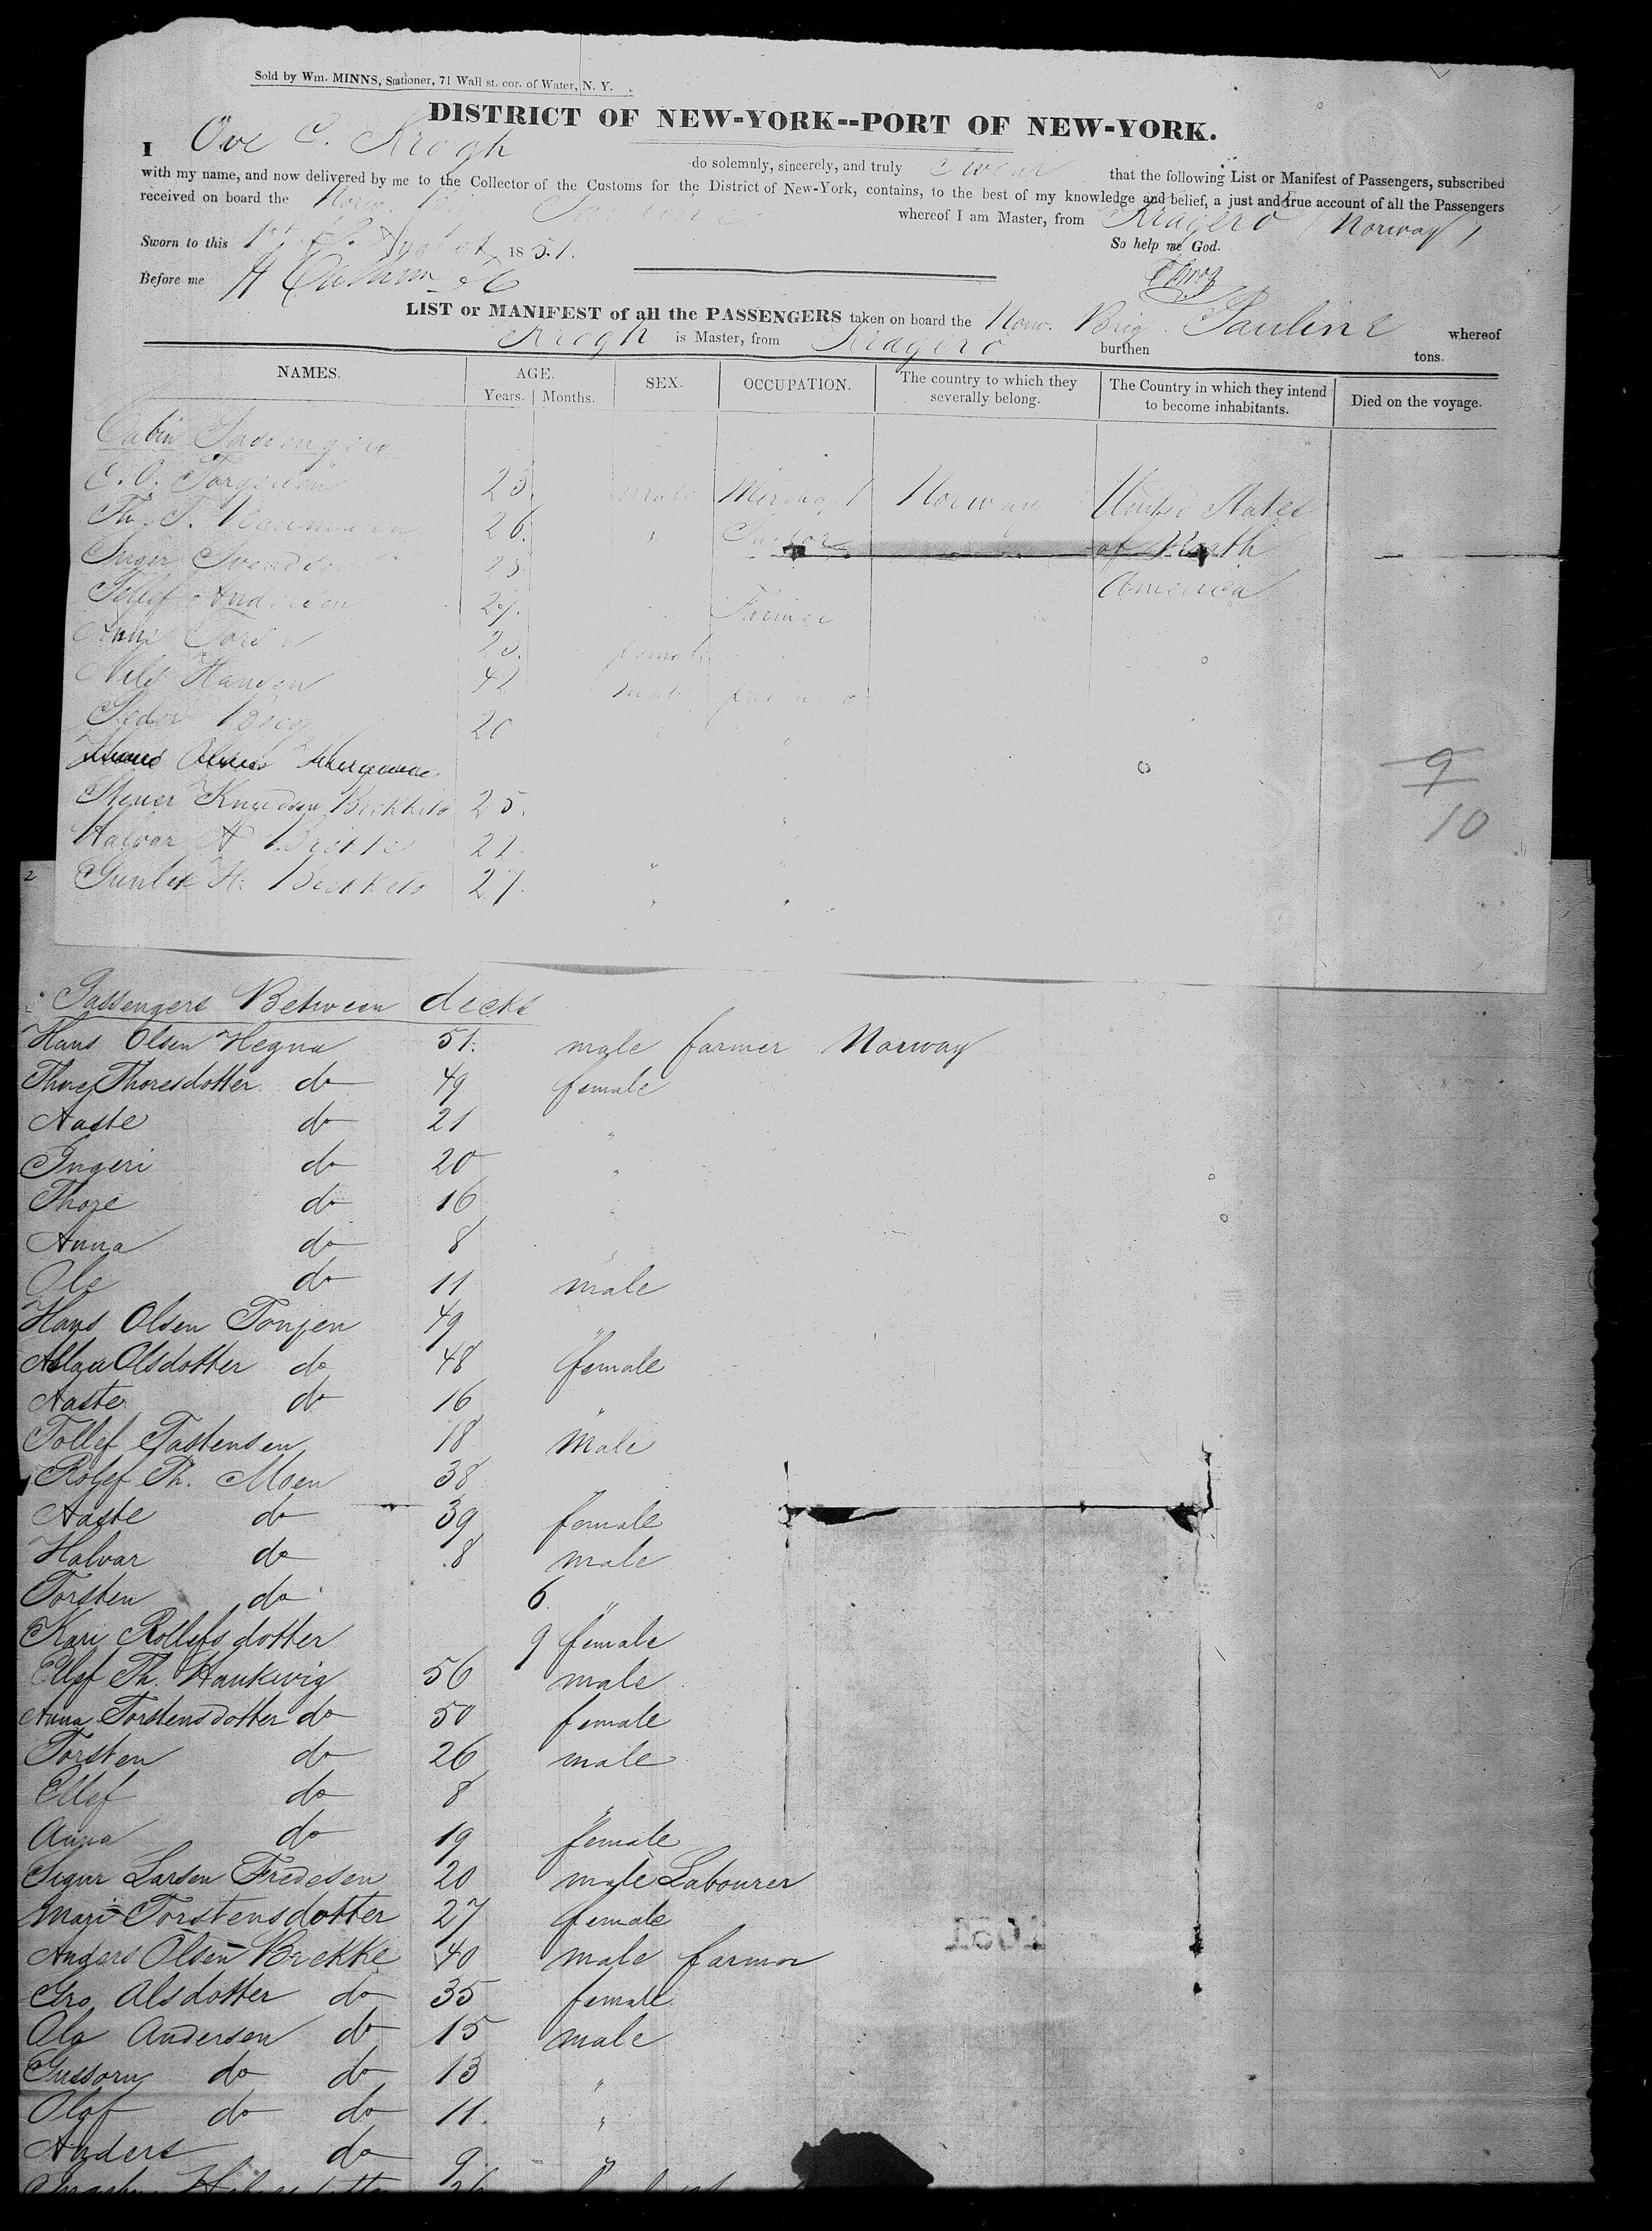 Sold by Wm. MINNS, Stationer, 71 Wall st. cor. of Water, N. Y.
DISTRICT OF NEW-YORK--PORT OF NEW-YORK.
I Ove C. Krogh do solemnly, sincerely, and truly swear that the following List or Manifest of Passengers, subscribed
with my name, and now delivered by me to the Collector of the Customs for the District of New-York, contains, to the best of my knowledge and belief, a just and true account of all the Passengers
received on board the Norw. Brig Pauline whereof I am Master, from Kragero Norway
Sworn to this 1st of August 1851. So help me God.
Before me
LIST or MANIFEST of all the PASSENGERS taken on board the Norw. Brig. Pauline whereof
Krogh is Master, from Kragero burthen tons.
NAMES. AGE. SEX. OCCUPATION. The country to which they severally belong. The Country in which they intend to become inhabitants. Died on the voyage.
Years. Months.
Cabin Passengers
C. O. 23. male Merchant Norway United States
Th. T. 26. " of North
Inger 23. America
Tellef Andersen 27. Farmer
23. female
Nils Hansen 42 male
Peder 20 " "
Hans Olsen
Stener Knudsen 25. "
9
10
Halvor 22. " "
Gunlek H. 27. " "
2
Passengers Between decks
Hans Olsen Hegna 51. male farmer Norway
Thore Thoresdotter do 49 female
Aaste do 21 "
Ingeri do 20 "
Thore do 16 "
Anna do 8 "
Ole do 11 male
Hans Olsen Tonjen 49 "
Olsdotter do 48 female
Aaste do 16 "
Tollef Tostensen 18 male
Rolef Th. Moen 38
Aaste do 39 female
Halvar do 8 male
Torsten do 6 "
Kari Rollefsdotter 9 female
Ellef Th. Haukwig 56 male
Anna Torstensdotter do 50 female
Torsten do 26 male
Ellef do 8 "
Anna do 19 female
Sigur Larsen Fredesen 20 male Labourer
Mari Torstensdotter 27 female
Anders Olsen Brekke 40 male farmer
Gro Olsdotter do 35 female
Ola Andersen do 15 male
Gussorn do do 13 "
Olaf do do 11. "
Anders do 9. "